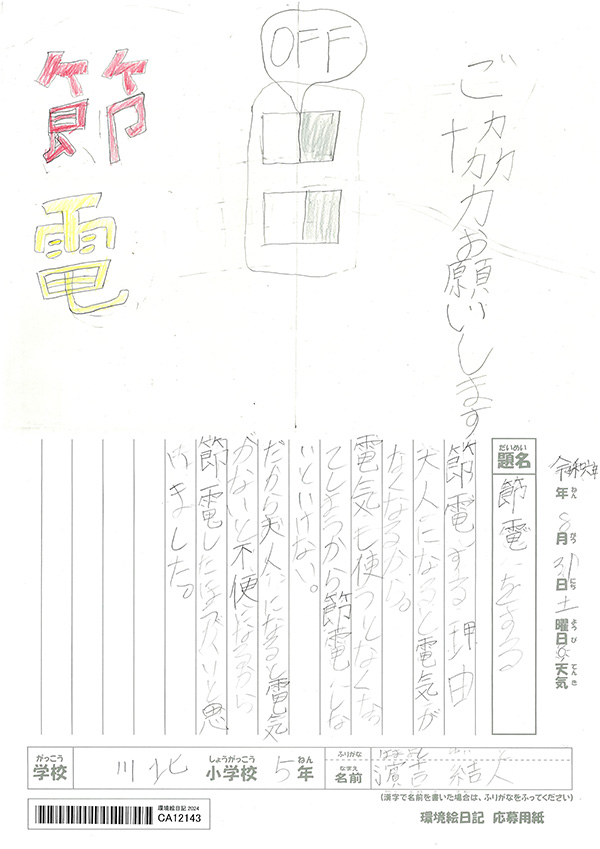 節電
OFF
ご協力お願いします
令和6年
年ねん 8月がつ 31日にち 土曜日ようび 天気てんき
だいめい
題名
節電をする
節電する理由
大人になると電気が
なくなるから。
電気も使うとなくな
てしまうから節電しな
いといけない。
だから大人になると電気
がないと不便になるから
節電したほうがいいと思
いました。
がっこう
学校 川北 しょうがっこう 小学校 5年ねん
ふりがな
なまえ
名前 結人
(漢字で名前を書いた場合は、ふりがなをふってください)
環境絵日記 2024
CA12143
環境絵日記 応募用紙